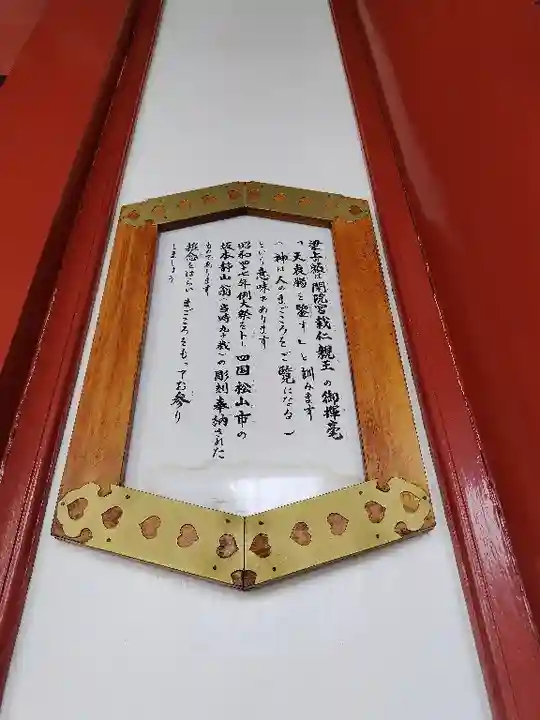 梁上の額は閑院宮載仁親王の御揮毫
「天衷腸を鑒す」と訓みます
(神は人のまごころをご覧になる)
という意味であります
昭和四十七年例大祭をトし四国松山市の
坂本静山翁(当時九十歳)の彫刻奉納された
ものであります
雑念をはらいまごころをもってお参り
しましょう